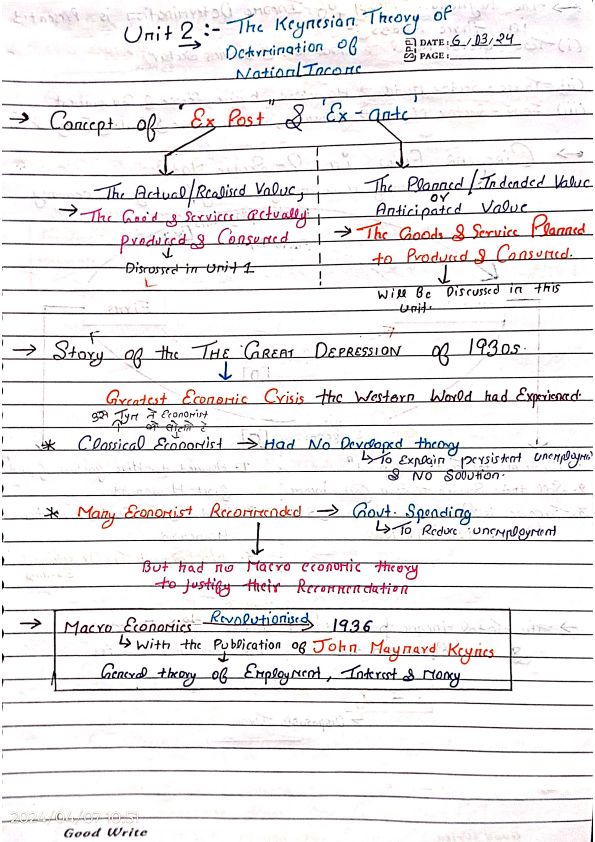 Unit 2 :- The Keynesian Theory of
Determination of
National Income
DATE: 6/03/24
PAGE:
→ Concept of "Ex Post" & 'Ex-ante'
The Actual/Realised Value,
→ The Good & Services actually
produced & Consumed
↓
Discussed in Unit 1
The Planned / Indended Value
or
Anticipated Value
→ The Goods & Service Planned
to Produced & Consumed.
↓
Will Be Discussed in this
Unit.
→ Story of the THE GREAT DEPRESSION of 1930s.
↓
Greatest Economic Crisis the Western World had Experienced.
उस युग के Economist
* Classical Economist → Had No Developed theory
↳ To Explain persistent unemploym
& No Solution.
* Many Economist Recommended → Govt. Spending
↳ To Reduce unemployment
↓
But had no Macro economic theory
to justify their Recommendation
→ Macro Economics Revolutionised → 1936
↳ With the Publication of John Maynard Keynes
↓
General theory of Employment, Interest & Money
2024/04/07 10:51
Good Write